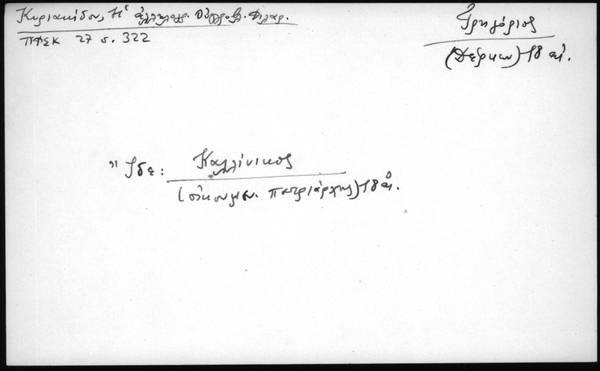 Κυριακίδου, Ἡ ἀλληλογρ. Φιλαρ.
ΠΦΣΚ 27 σ. 322
Γρηγόριος
(Δέρκων) 18 αἰ.
"Ἴδε: Καλλίνικος
(οἰκουμεν. πατριάρχης) 18 αἰ.